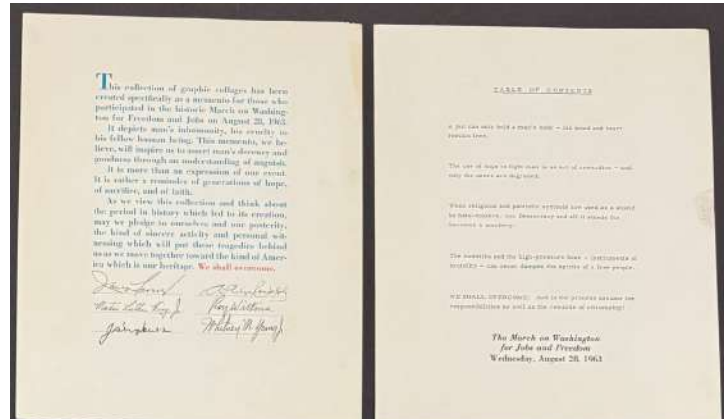 This collection of graphic collages has been
created specifically as a memento for those who
participated in the historic March on Washing-
ton for Freedom and Jobs on August 28, 1963.
It depicts man's inhumanity, his cruelty to
his fellow human being. This memento, we be-
lieve, will inspire us to assert man's decency and
goodness through an understanding of anguish.
It is more than an expression of our event.
It is rather a reminder of generations of hope,
of sacrifice, and of faith.
As we view this collection and think about
the period in history which led to its creation,
may we pledge to ourselves and our posterity,
the kind of sincere activity and personal wit-
nessing which will put these tragedies behind
us as we move together toward the kind of Amer-
ica which is our heritage. We shall overcome.
Martin Luther King Jr
Roy Wilkins
Whitney M Young Jr
TABLE OF CONTENTS
A jail can only hold a man's body - his mind and
free.
The use of dogs to fight men is an act of - and
only the users are degraded.
When religious and patriotic symbols are used as a shield
Democracy and all it stands for
becomes a mockery.
The and the high-pressure hose - instruments of
brutality - can never dampen the spirits of a free people.
WE SHALL OVERCOME! And in the process assume the
responsibilities as well as the rewards of citizenship!
The March on Washington
for Jobs and Freedom
Wednesday, August 28, 1963